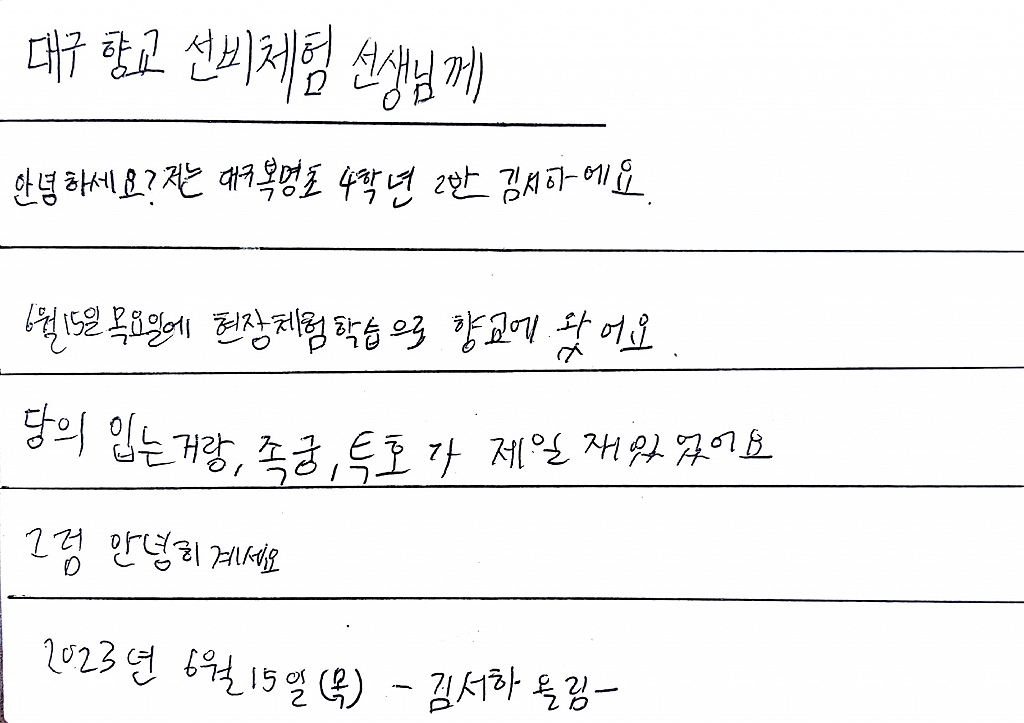 대구 향교 선비체험 선생님께
안녕하세요? 저는 대구복명초 4학년 2반 김서하에요.
6월 15일 목요일에 현장체험학습으로 향교에 왔어요.
당의 입는거랑, 족궁, 투호가 제일 재있었어요
그럼 안녕히 계세요
2023년 6월 15일(목) - 김서하 올림-